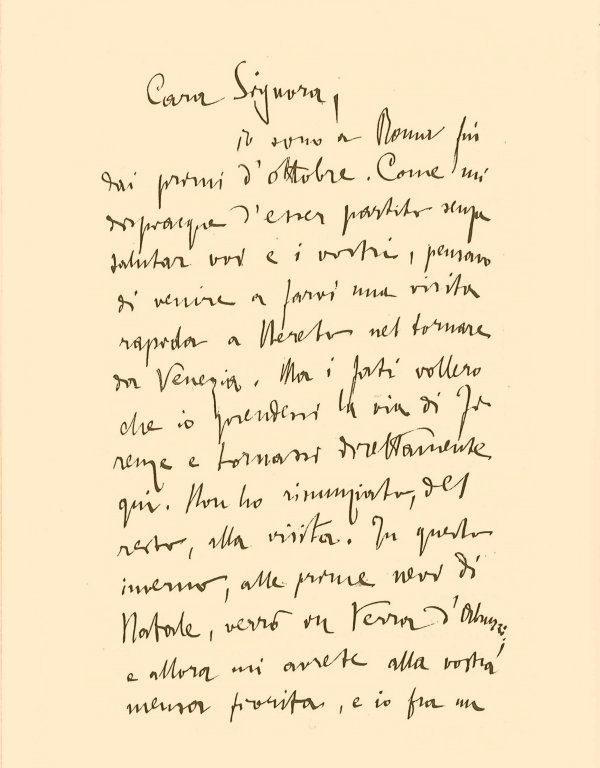 Cara Signora,
io sono a Roma fin
dai primi d'ottobre. Come mi
dispiacque d'esser partito senza
salutar voi e i vostri, pensavo
di venire a farvi una visita
rapida a Nereto nel tornare
da Venezia. Ma i fati vollero
che io prendessi la via di Fi-
renze e tornassi direttamente
qui. Non ho rinunziato, del
resto, alla visita. In questo
inverno, alle prime nevi di
Natale, verrò in Terra d'Abruzzi,
e allora mi avrete alla vostra
mensa fiorita, e io fra un